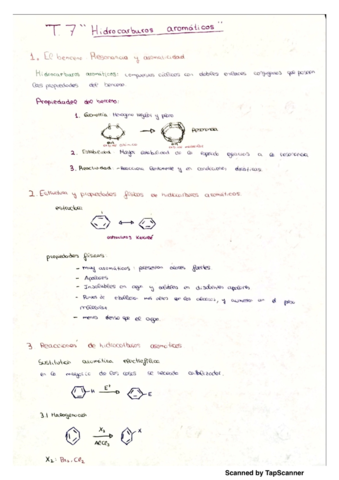 T. 7 "Hidrocarburos aromáticos"
1. El benceno. Resonancia y aromaticidad
Hidrocarburos aromáticos: compuestos cíclicos con dobles enlaces conjugados que poseen
propiedades del benceno.
Propiedades del benceno:
1. Geometría: Hexágono regular y plano
Resonancia
2. Estabilidad: Mayor estabilidad de la esperada a la resonancia.
3. Reactividad: en condiciones
2. Estructura y propiedades físicas de hidrocarburos aromáticos:
estructura:
estructuras Kekulé
propiedades físicas:
- muy aromáticos: presentan olores fuertes
- Apolares
- Insolubles en agua y solubles en disolventes apolares
- Punto de más que los y aumenta con el peso
molecular
- menos denso que el agua.
3. Reacciones de hidrocarburos aromáticos
Sustitución aromática electrofílica
en la mayoría de los casos se necesita catalizador.
H E⁺ E
3.1 Halogenación
X₂ X
AlCl₃
X₂: Br₂, Cl₂
Scanned by TapScanner